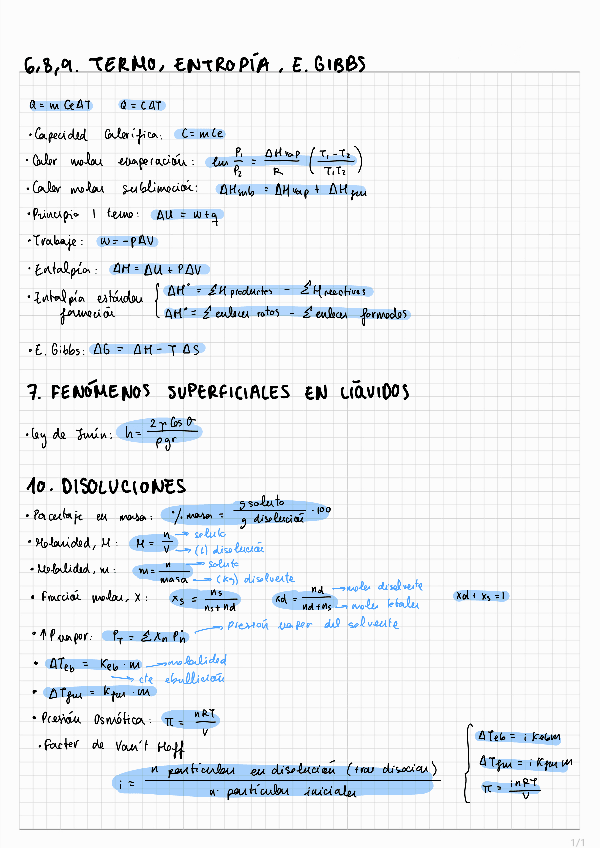 6,8,9. TERMO, ENTROPÍA, E. GIBBS
Q = m Ce ΔT   Q = C ΔT
· Capacidad Calorífica: C = m Ce
· Calor molar evaporación: ln P₁/P₂ = ΔHvap/R (T₁ - T₂ / T₁T₂)
· Calor molar sublimación: ΔHsub = ΔHvap + ΔHfus
· Principio 1 termo: ΔU = w + q
· Trabajo: w = -PΔV
· Entalpía: ΔH = ΔU + PΔV
· Entalpía estándar formación { ΔH° = ΣH productos - ΣH reactivos
ΔH° = Σ enlaces rotos - Σ enlaces formados
· E. Gibbs: ΔG = ΔH - T ΔS
7. FENÓMENOS SUPERFICIALES EN LÍQUIDOS
· Ley de Jurin: h = 2γ Cos θ / ρgr
10. DISOLUCIONES
· Porcentaje en masa: % masa = g soluto / g disolución · 100
· Molaridad, M: M = n / V → soluto → (L) disolución
· Molalidad, m: m = n / masa → soluto → (kg) disolvente
· Fracción molar, X: Xs = ns / ns + nd   Xd = nd / nd + ns → moles disolvente → moles totales   Xd + Xs = 1
· ↑ P vapor: P_T = Σ Xn P°n → presión vapor del solvente
· ΔTeb = Keb · m → molalidad
→ cte ebullición
· ΔTfus = Kfus · m
· Presión Osmótica: π = nRT / V
· Factor de Van't Hoff
i = n partículas en disolución (tras disociar) / n partículas iniciales
{ ΔTeb = i Keb m
ΔTfus = i Kfus m
π = inRT / V
1/1